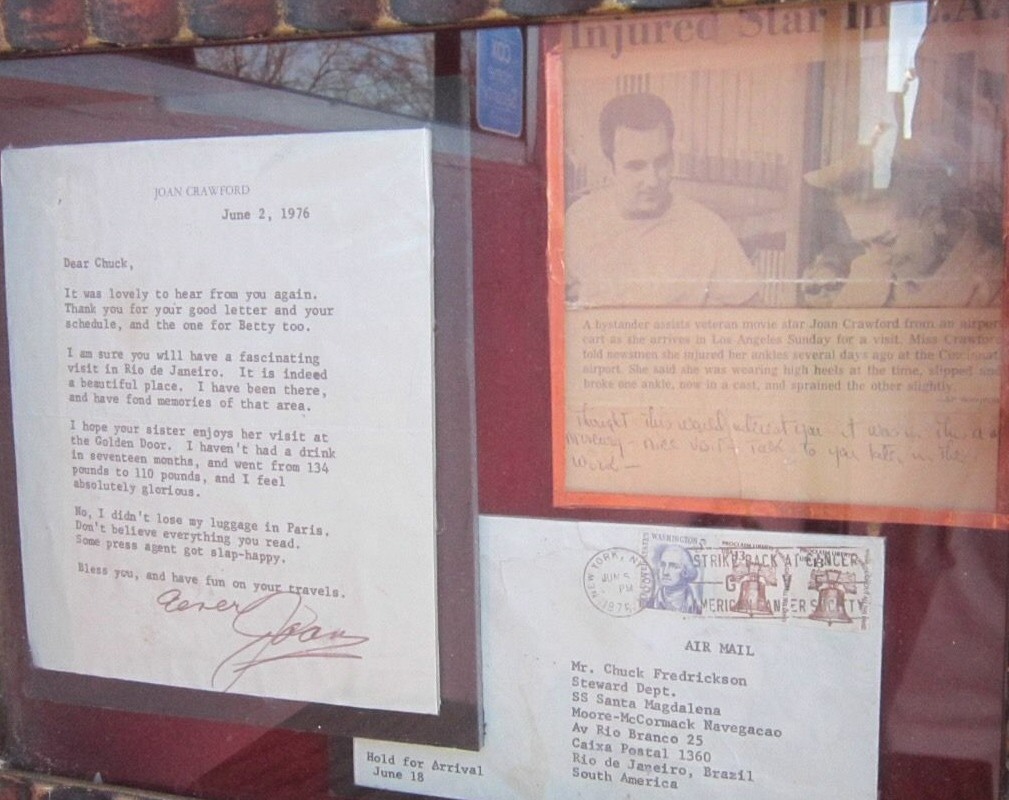 JOAN CRAWFORD
June 2, 1976
Dear Chuck,
It was lovely to hear from you again.
Thank you for your good letter and your
schedule, and the one for Betty too.
I am sure you will have a fascinating
visit in Rio de Janeiro. It is indeed
a beautiful place. I have been there,
and have fond memories of that area.
I hope your sister enjoys her visit at
the Golden Door. I haven't had a drink
in seventeen months, and went from 134
pounds to 110 pounds, and I feel
absolutely glorious.
No, I didn't lose my luggage in Paris.
Don't believe everything you read.
Some press agent got slap-happy.
Bless you, and have fun on your travels.
Joan
Injured Star In L.A.
A bystander assists veteran movie star Joan Crawford from an airport
cart as she arrives in Los Angeles Sunday for a visit. Miss Crawford
told newsmen she injured her ankles several days ago at the Cincinnati
airport. She said she was wearing high heels at the time, slipped and
broke one ankle, now in a cast, and sprained the other slightly.
thought this would interest you it was
nice to you later in the
NEW YORK, NY
JUN 5
PM
1976
WASHINGTON
STRIKE BACK AT CANCER
AMERICAN CANCER SOCIETY
AIR MAIL
Mr. Chuck Fredrickson
Steward Dept.
SS Santa Magdalena
Moore-McCormack Navegacao
Av Rio Branco 25
Caixa Postal 1360
Rio de Janeiro, Brazil
South America
Hold for Arrival
June 18